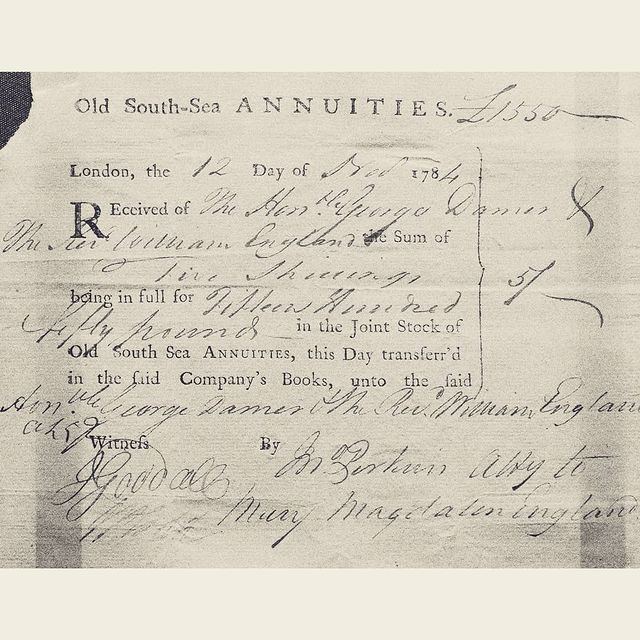 Old South-Sea ANNUITIES. £1550
London, the 12 Day of Nov 1784
REceived of The Hon.ble George Damer &
The Rev.d William England the Sum of
Five Shillings 5/
being in full for Fifteen Hundred
fifty pounds in the Joint Stock of
Old South Sea ANNUITIES, this Day transferr'd
in the said Company's Books, unto the said
Hon.ble George Damer & The Rev.d William England
Witness By Jno Perkins Atty to
J Goodall
Mary Magdalen England